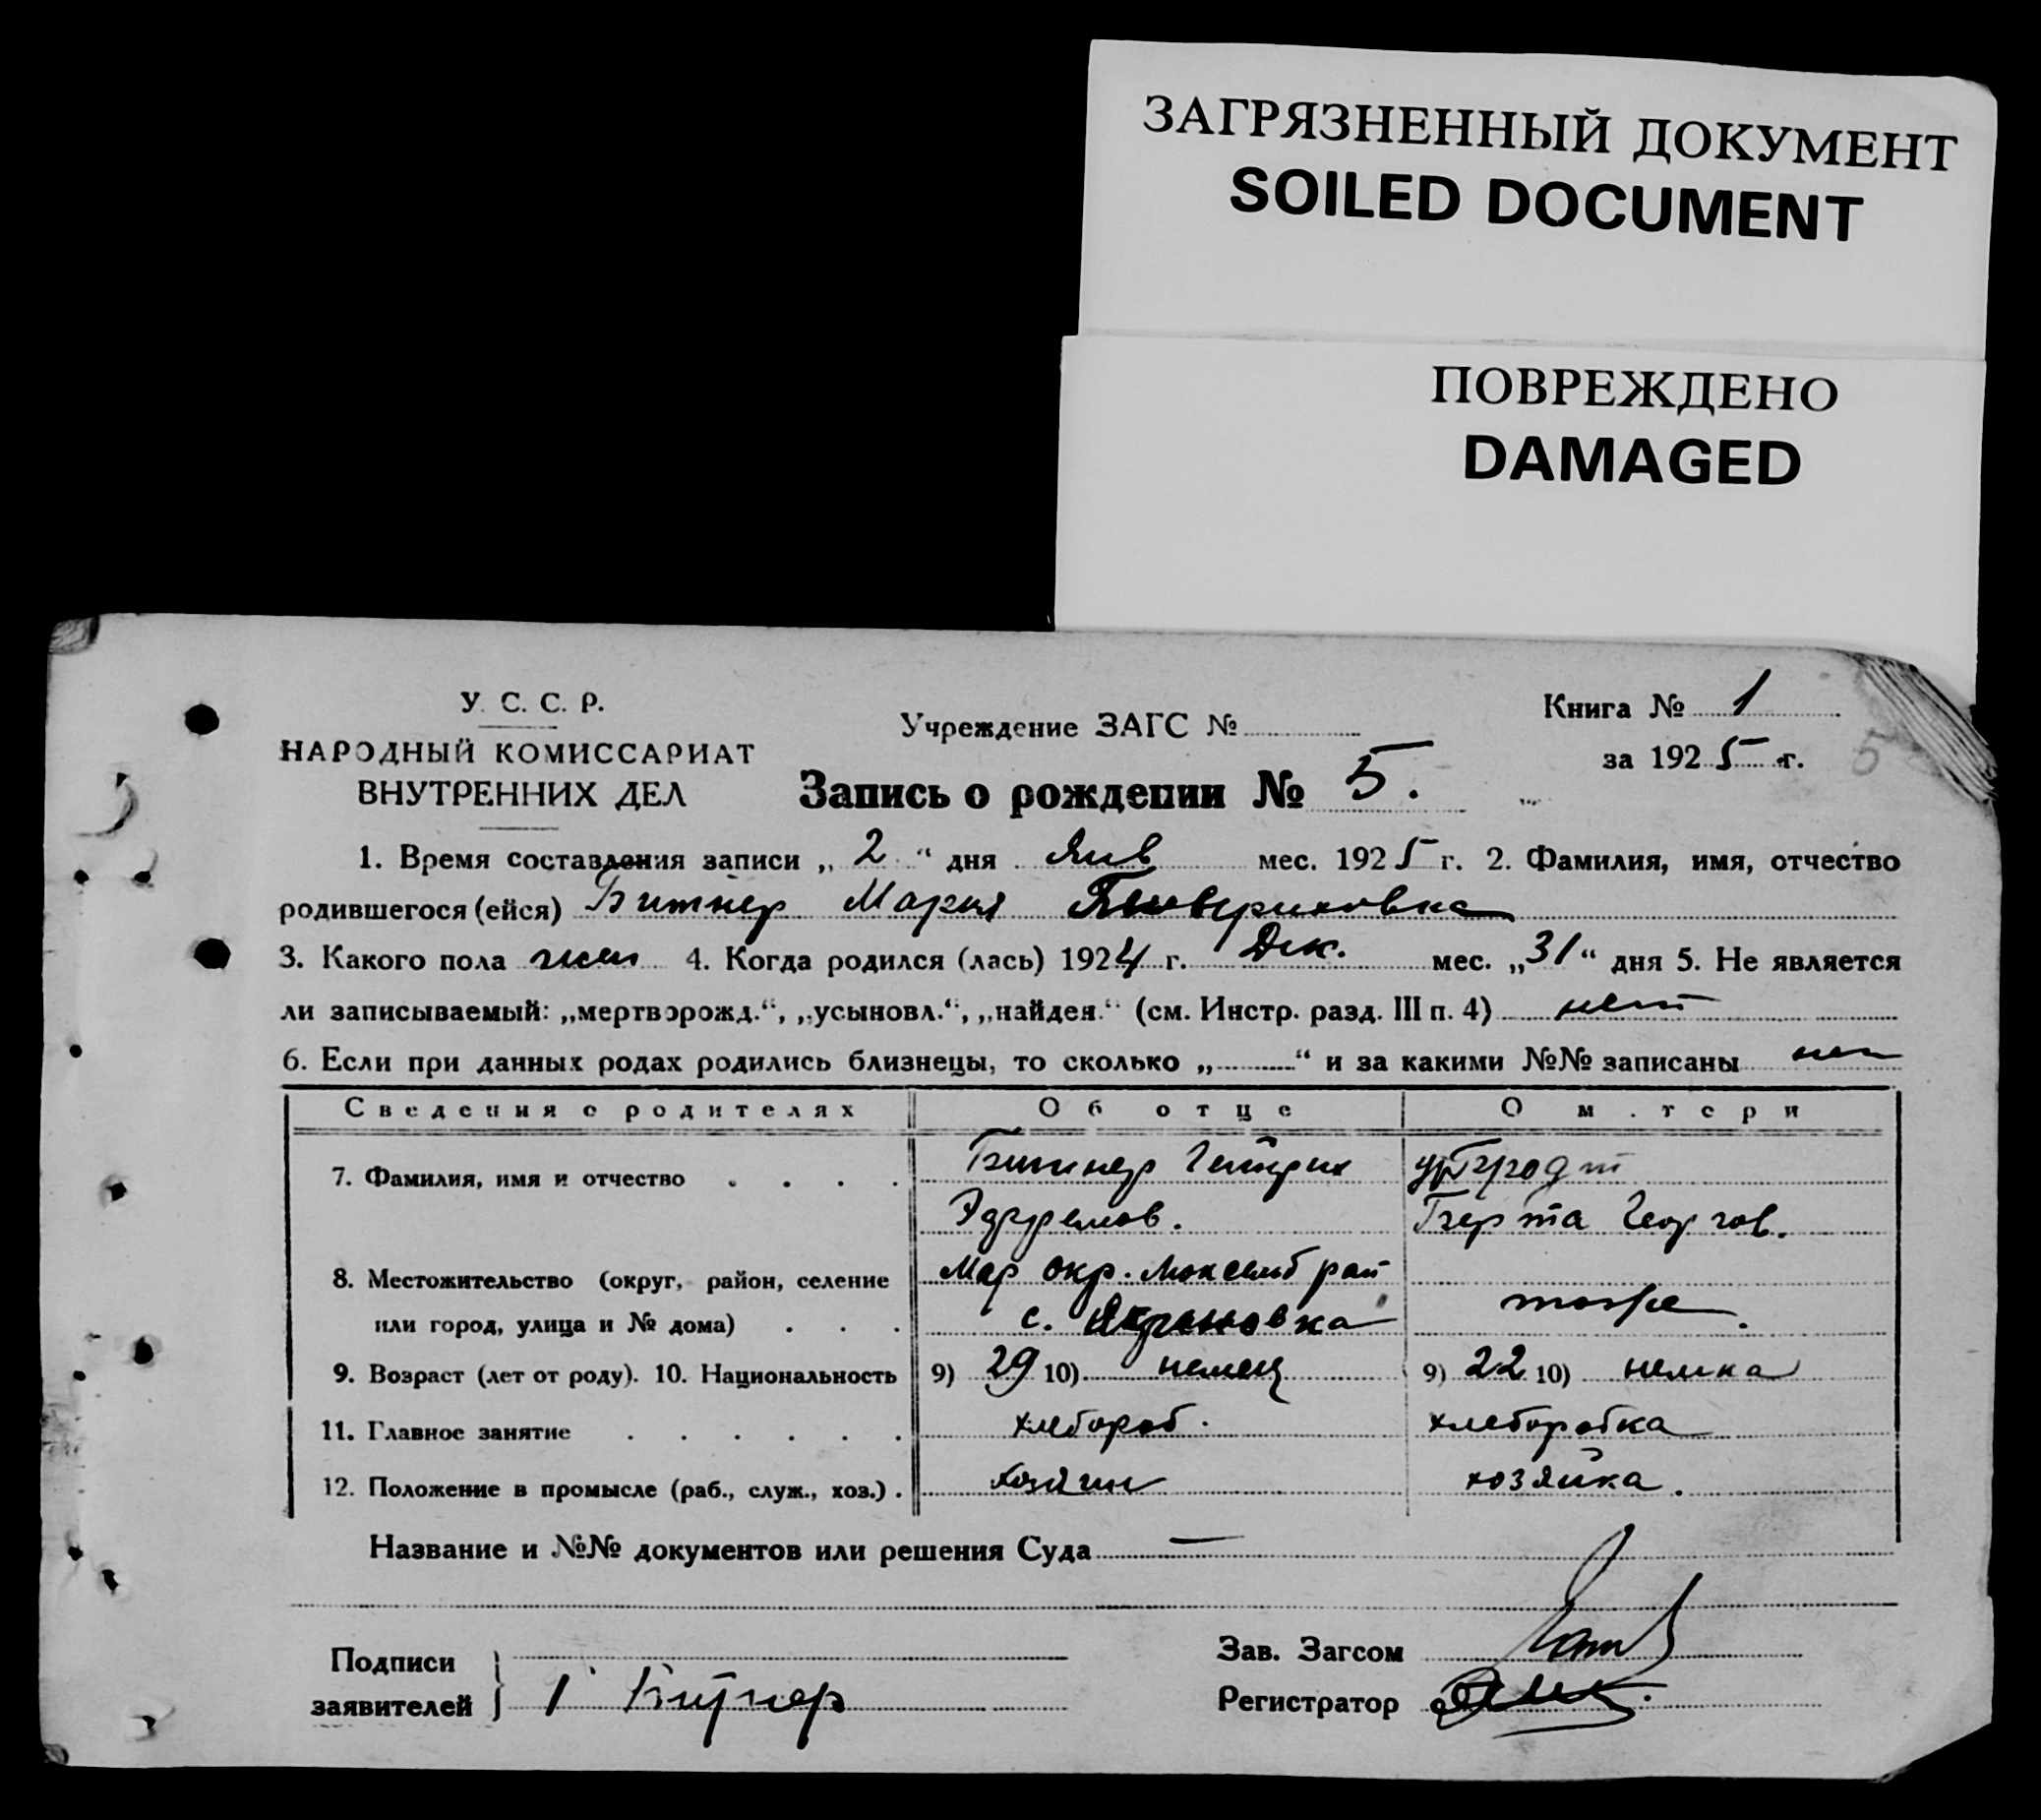 ЗАГРЯЗНЕННЫЙ ДОКУМЕНТ
SOILED DOCUMENT
ПОВРЕЖДЕНО
DAMAGED
У. С. С. Р.
НАРОДНЫЙ КОМИССАРИАТ
ВНУТРЕННИХ ДЕЛ
Учреждение ЗАГС №
Книга № 1
за 1925 г. 5
Запись о рождении № 5.
1. Время составления записи „ 2 “ дня Янв мес. 1925 г. 2. Фамилия, имя, отчество
родившегося (ейся) Битнер Мария
3. Какого пола жен 4. Когда родился (лась) 1924 г. Дек. мес. „31“ дня 5. Не является
ли записываемый: „мертворожд.“, „усыновл.“, „найден.“ (см. Инстр. разд. III п. 4) нет
6. Если при данных родах родились близнецы, то сколько „ “ и за какими №№ записаны нет
Сведения о родителях Об отце О м.тери
7. Фамилия, имя и отчество Битнер Гейнрих
Берта Георгов.
8. Местожительство (округ, район, селение Мар окр.
или город, улица и № дома) с. тоже.
9. Возраст (лет от роду). 10. Национальность 9) 29 10) немец 9) 22 10) немка
11. Главное занятие хлебороб. хлеборобка
12. Положение в промысле (раб., служ., хоз.) хозяин хозяйка.
Название и №№ документов или решения Суда —
Подписи
заявителей Битнер
Зав. Загсом
Регистратор